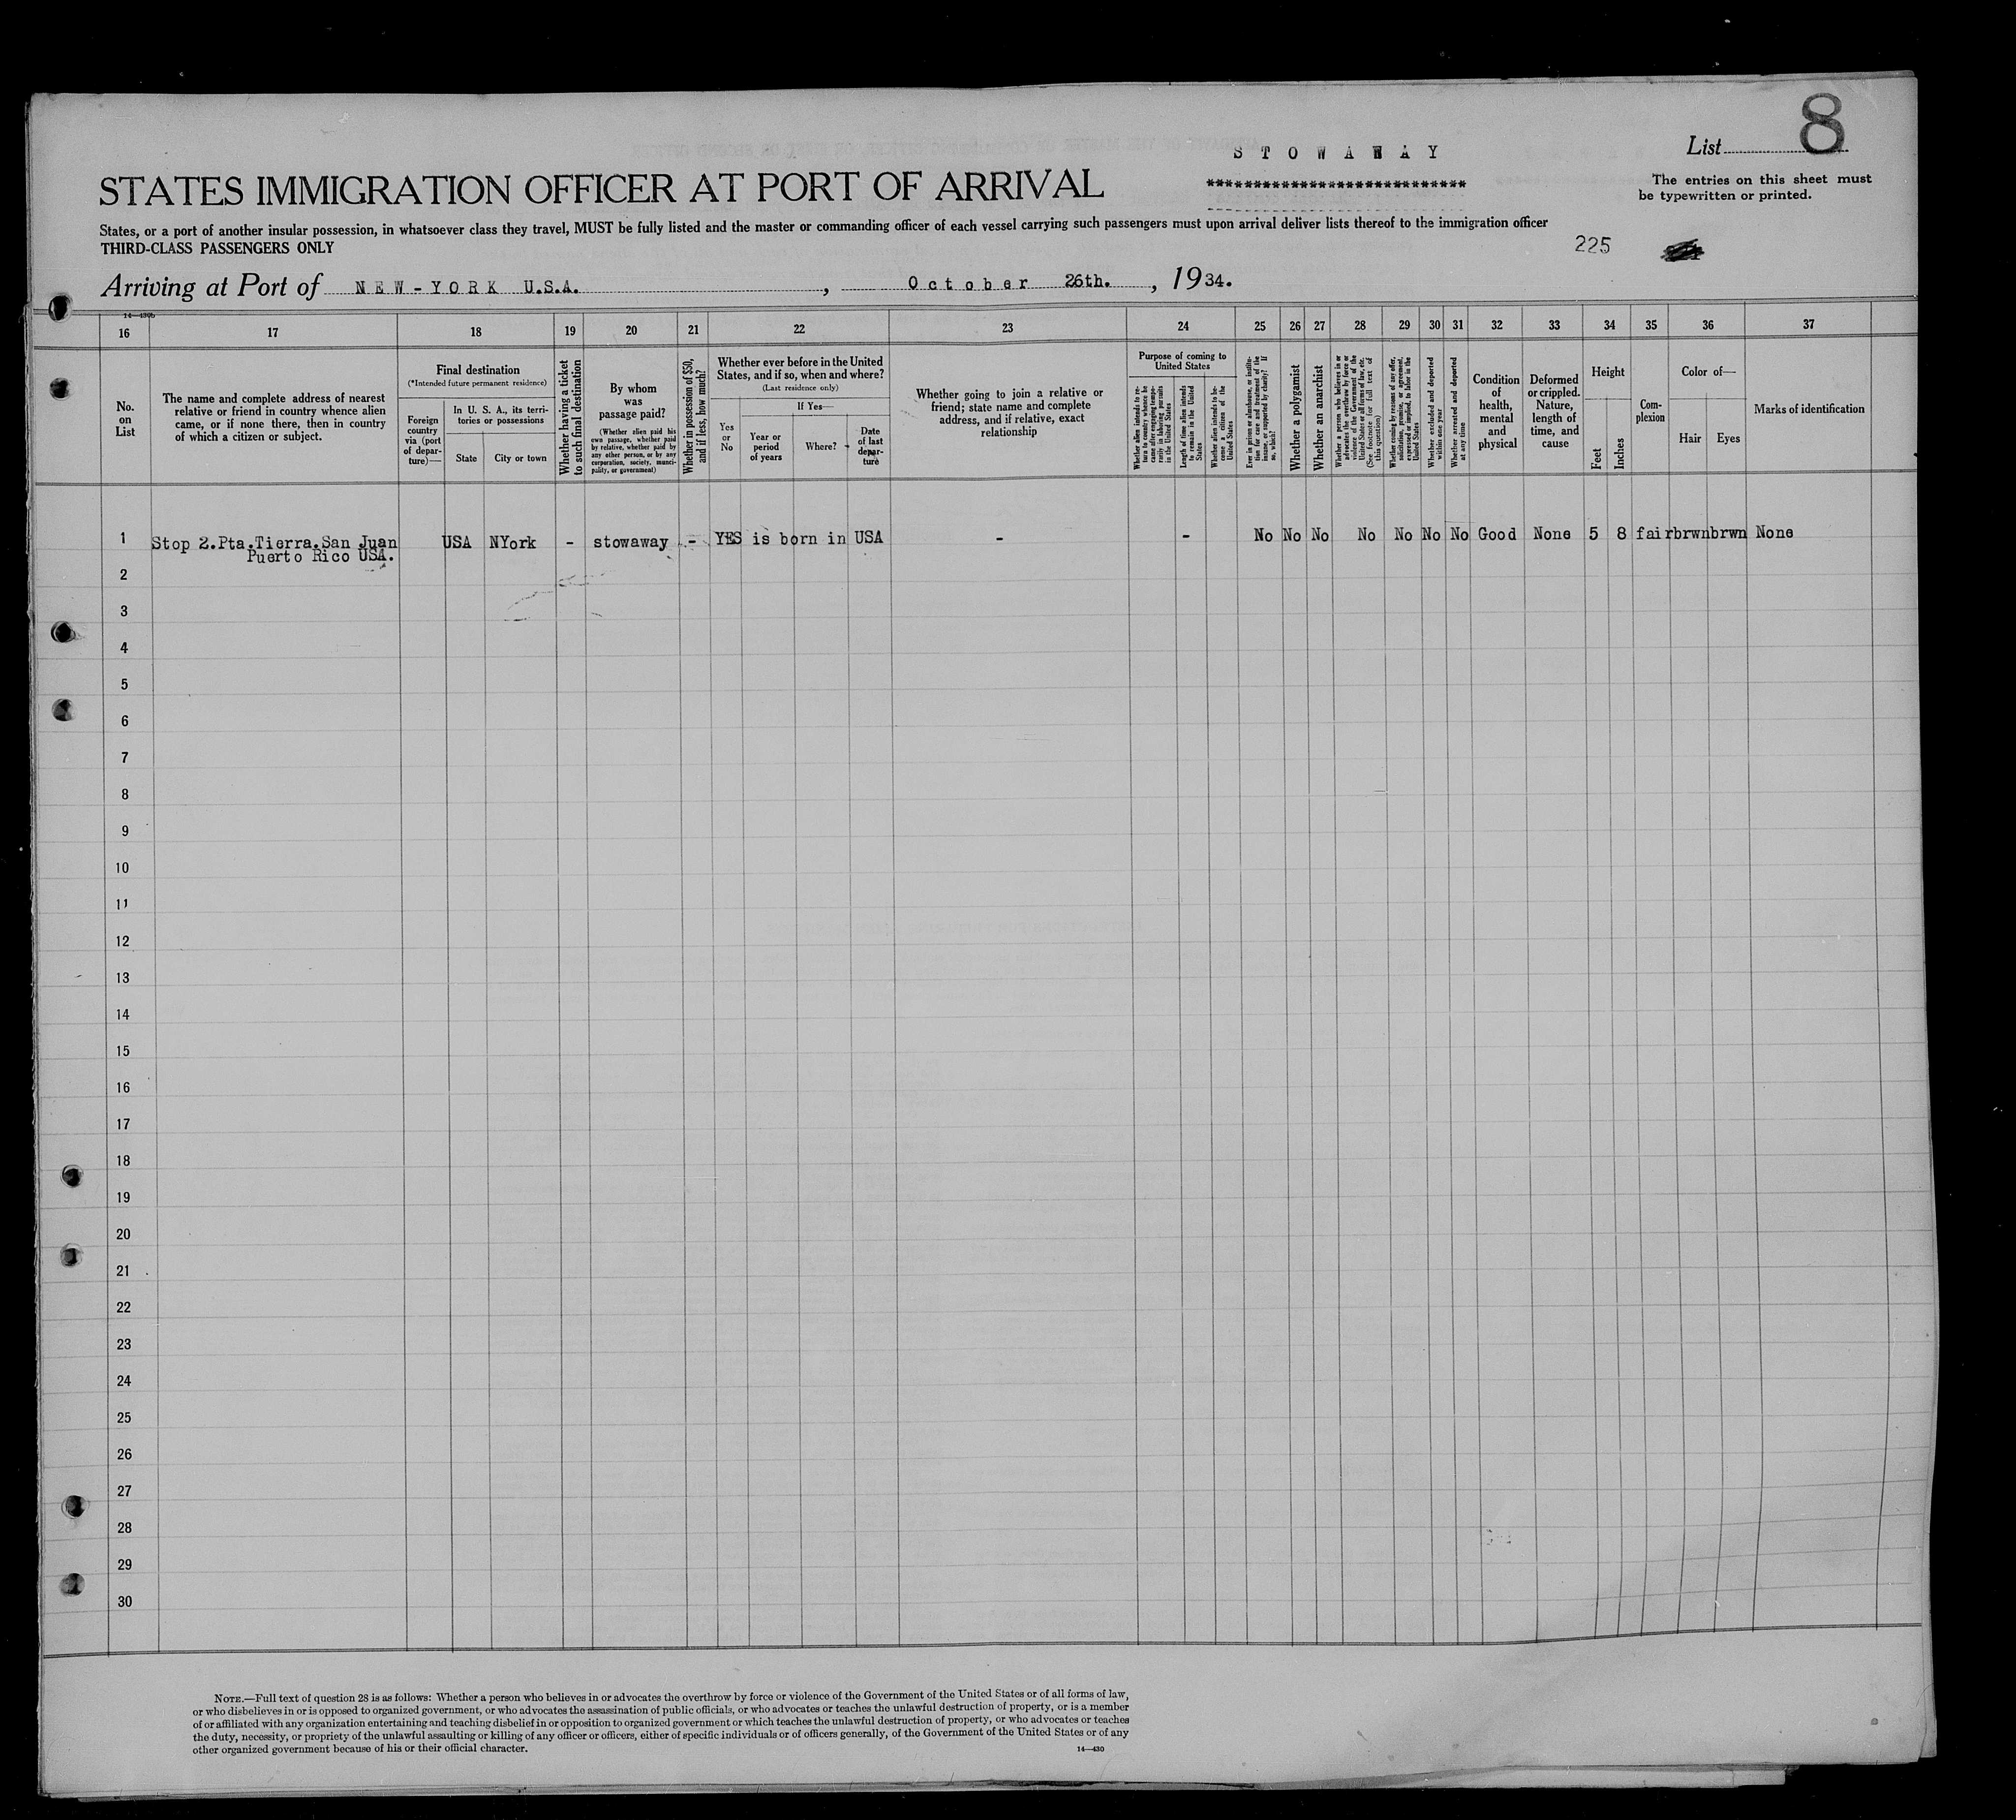 8
List
STOWAWAY
**************************
STATES IMMIGRATION OFFICER AT PORT OF ARRIVAL
The entries on this sheet must
be typewritten or printed.
States, or a port of another insular possession, in whatsoever class they travel, MUST be fully listed and the master or commanding officer of each vessel carrying such passengers must upon arrival deliver lists thereof to the immigration officer
THIRD-CLASS PASSENGERS ONLY
225
Arriving at Port of NEW-YORK U.S.A. , October 26th. , 1934.
14—430b
16 17 18 19 20 21 22 23 24 25 26 27 28 29 30 31 32 33 34 35 36 37
No.
on
List
The name and complete address of nearest
relative or friend in country whence alien
came, or if none there, then in country
of which a citizen or subject.
Final destination
(*Intended future permanent residence)
Foreign
country
via (port
of depar-
ture)—
In U. S. A., its terri-
tories or possessions
State
City or town
Whether having a ticket
to such final destination
By whom
was
passage paid?
(Whether alien paid his
own passage, whether paid
by relative, whether paid by
any other person, or by any
corporation, society, munici-
pality, or government)
Whether in possession of $50,
and if less, how much?
Whether ever before in the United
States, and if so, when and where?
(Last residence only)
Yes
or
No
If Yes—
Year or
period
of years
Where?
Date
of last
depar-
ture
Whether going to join a relative or
friend; state name and complete
address, and if relative, exact
relationship
Purpose of coming to
United States
Whether alien intends to re-
turn to country whence he
came after engaging tempo-
rarily in laboring pursuits
in the United States
Length of time alien intends
to remain in the United
States
Whether alien intends to be-
come a citizen of the
United States
Ever in prison or almshouse, or institu-
tion for care and treatment of the
insane, or supported by charity? If
so, which?
Whether a polygamist
Whether an anarchist
Whether a person who believes in or
advocates the overthrow by force or
violence of the Government of the
United States or all forms of law, etc.
(See footnote for full text of
this question)
Whether coming by reasons of any offer,
solicitation, promise, or agreement,
expressed or implied, to labor in the
United States
Whether excluded and deported
within one year
Whether arrested and deported
at any time
Condition
of
health,
mental
and
physical
Deformed
or crippled.
Nature,
length of
time, and
cause
Height
Feet
Inches
Com-
plexion
Color of—
Hair
Eyes
Marks of identification
1 Stop 2.Pta.Tierra.San Juan USA NYork - stowaway - YES is born in USA - - No No No No No No No Good None 5 8 fair brwn brwn None
Puerto Rico USA.
2
3
4
5
6
7
8
9
10
11
12
13
14
15
16
17
18
19
20
21
22
23
24
25
26
27
28
29
30
NOTE.—Full text of question 28 is as follows: Whether a person who believes in or advocates the overthrow by force or violence of the Government of the United States or of all forms of law,
or who disbelieves in or is opposed to organized government, or who advocates the assassination of public officials, or who advocates or teaches the unlawful destruction of property, or is a member
of or affiliated with any organization entertaining and teaching disbelief in or opposition to organized government or which teaches the unlawful destruction of property, or who advocates or teaches
the duty, necessity, or propriety of the unlawful assaulting or killing of any officer or officers, either of specific individuals or of officers generally, of the Government of the United States or of any
other organized government because of his or their official character.
14—430